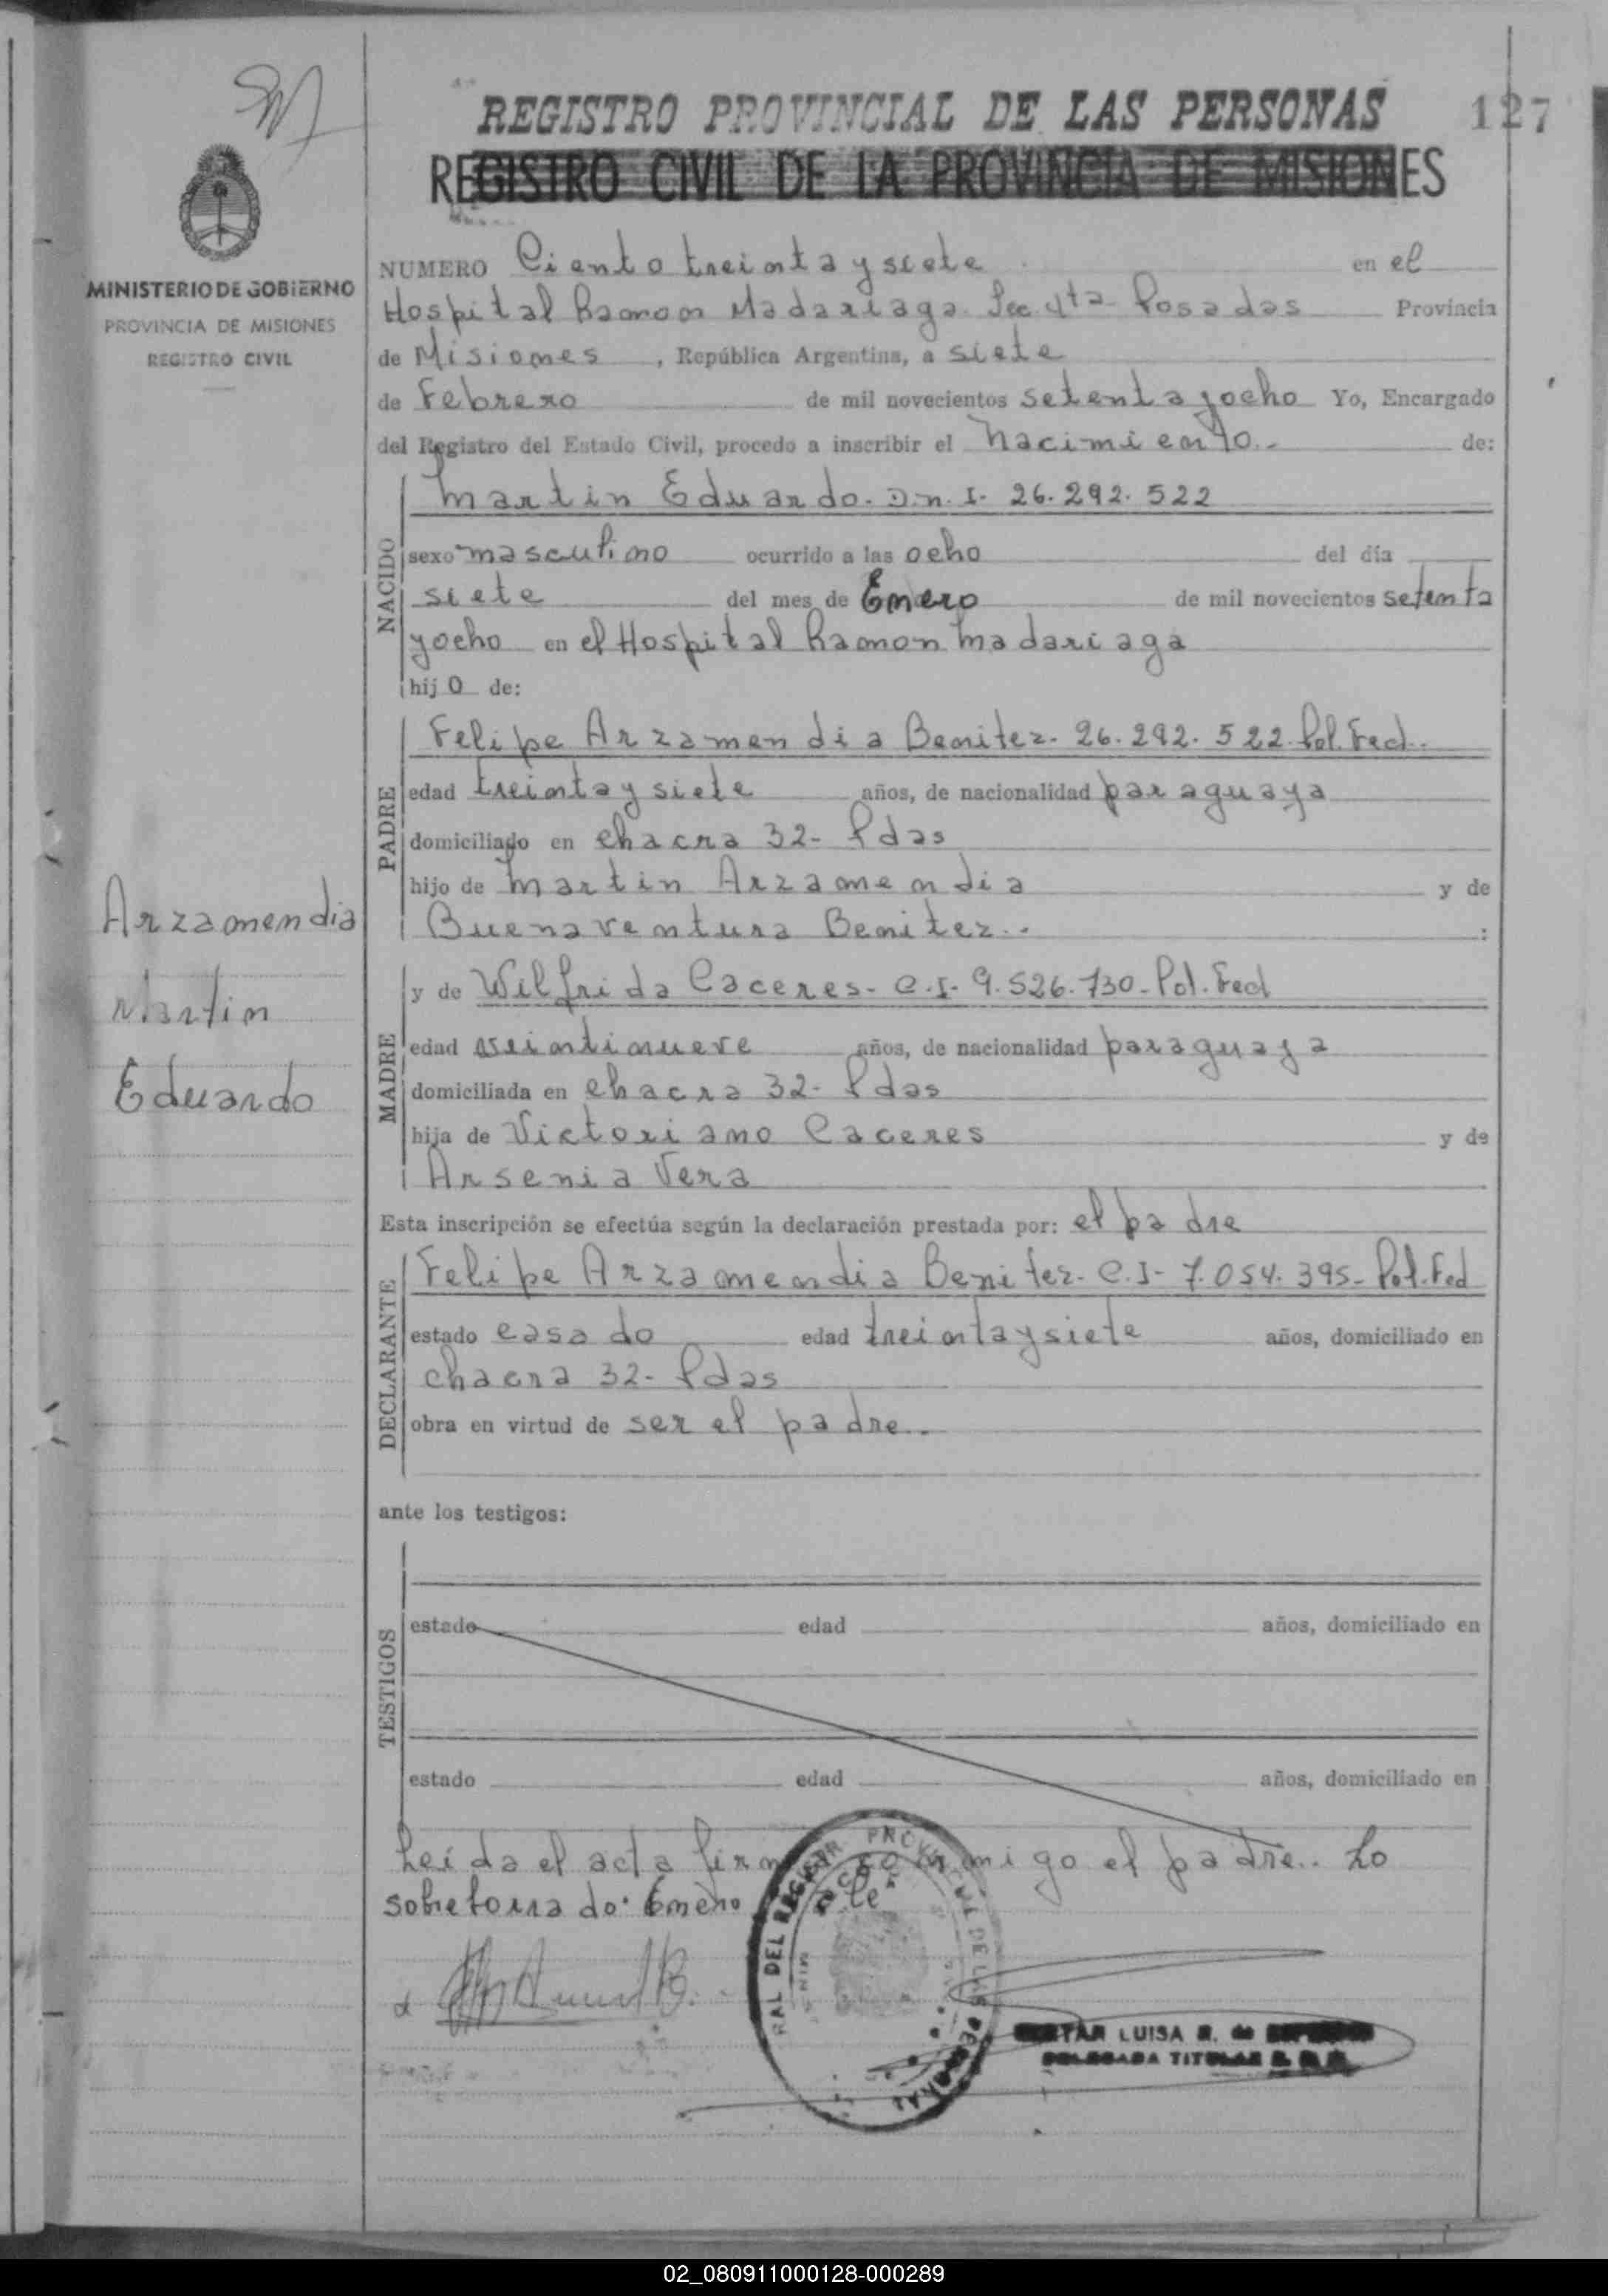 127
REGISTRO PROVINCIAL DE LAS PERSONAS
REGISTRO CIVIL DE LA PROVINCIA DE MISIONES
MINISTERIO DE GOBIERNO
PROVINCIA DE MISIONES
REGISTRO CIVIL
NUMERO Ciento treinta y siete en el
Hospital Ramon Madariaga. Sec. 4ta Posadas Provincia
de Misiones, República Argentina, a siete
de Febrero de mil novecientos setenta y ocho Yo, Encargado
del Registro del Estado Civil, procedo a inscribir el Nacimiento.- de:
NACIDO
Martin Eduardo. D.N.I. 26.292.522
sexo masculino ocurrido a las ocho del día
siete del mes de Enero de mil novecientos setenta
y ocho en el Hospital Ramon Madariaga
hijo de:
PADRE
Felipe Arzamendia Benitez- 26.292.522 Pol. Fed.
edad treinta y siete años, de nacionalidad paraguaya
domiciliado en chacra 32- Pdas
hijo de Martin Arzamendia y de
Buenaventura Benitez..
Arzamendia
Martin
Eduardo
MADRE
y de Wilfrida Caceres- C.I- 9.526.730- Pol. Fed
edad veintinueve años, de nacionalidad paraguaya
domiciliada en chacra 32- Pdas
hija de Victoriano Caceres y de
Arsenia Vera
Esta inscripción se efectúa según la declaración prestada por: el padre
DECLARANTE
Felipe Arzamendia Benitez- C.I- 7.054.395- Pol. Fed
estado casado edad treinta y siete años, domiciliado en
chacra 32- Pdas
obra en virtud de ser el padre..
ante los testigos:
TESTIGOS
estado edad años, domiciliado en
estado edad años, domiciliado en
Leida el acta firma conmigo el padre.. Lo
sobreborrado: Enero vale
LUISA R. de
DELEGADA TITULAR
02_080911000128-000289